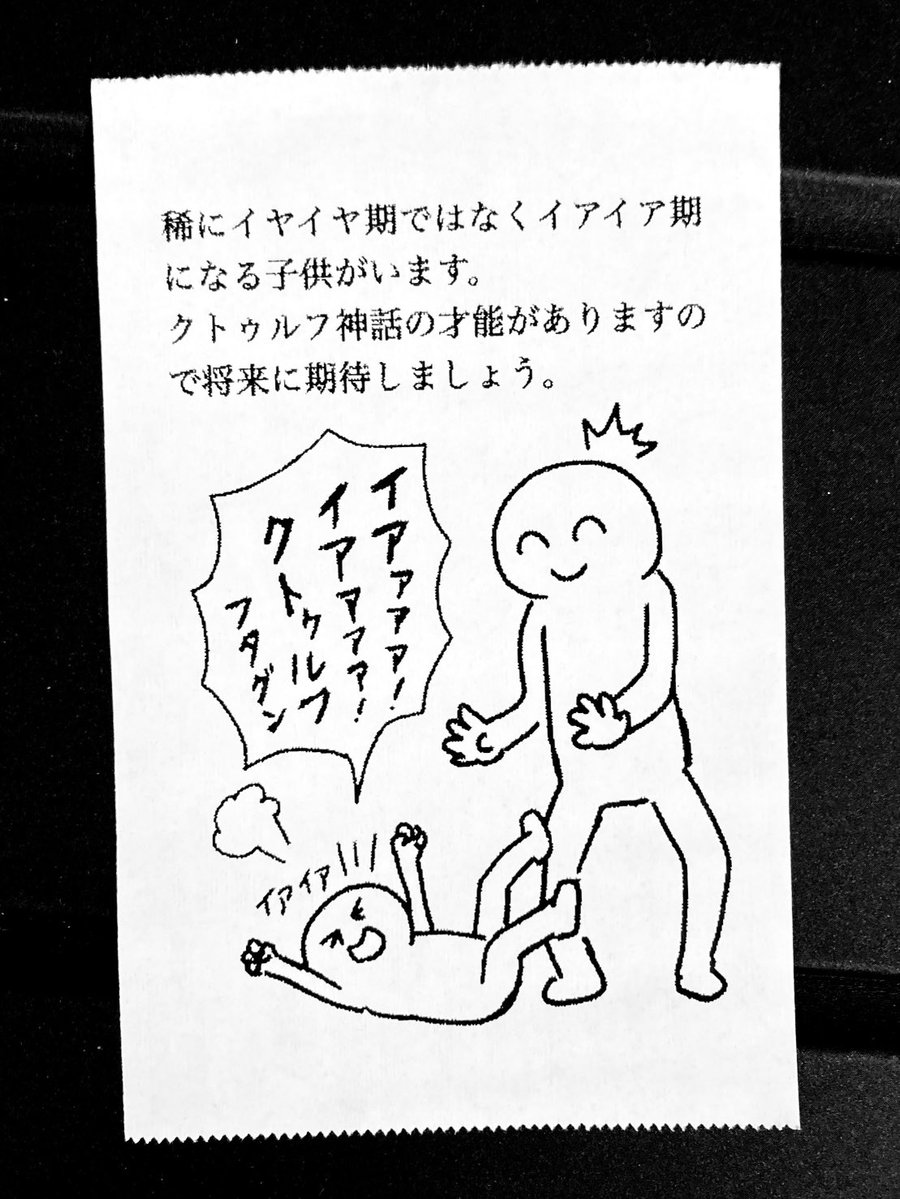 稀にイヤイヤ期ではなくイアイア期
になる子供がいます。
クトゥルフ神話の才能がありますの
で将来に期待しましょう。
イアァァァ!
イアァァァ!
クトゥルフ
フタグン
イアイア